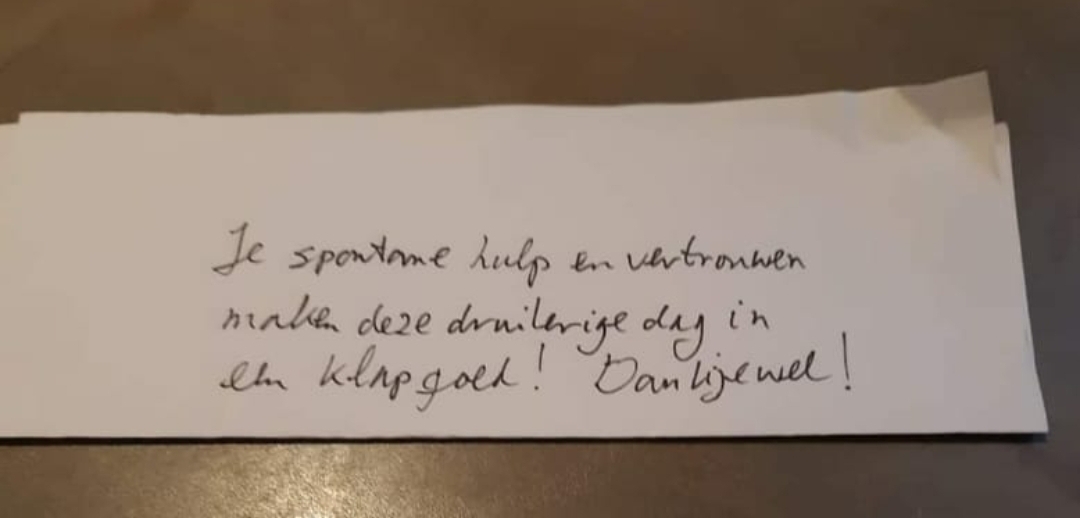 Je spontane hulp en vertrouwen
maken deze druilerige dag in
een klap goed! Dankjewel!